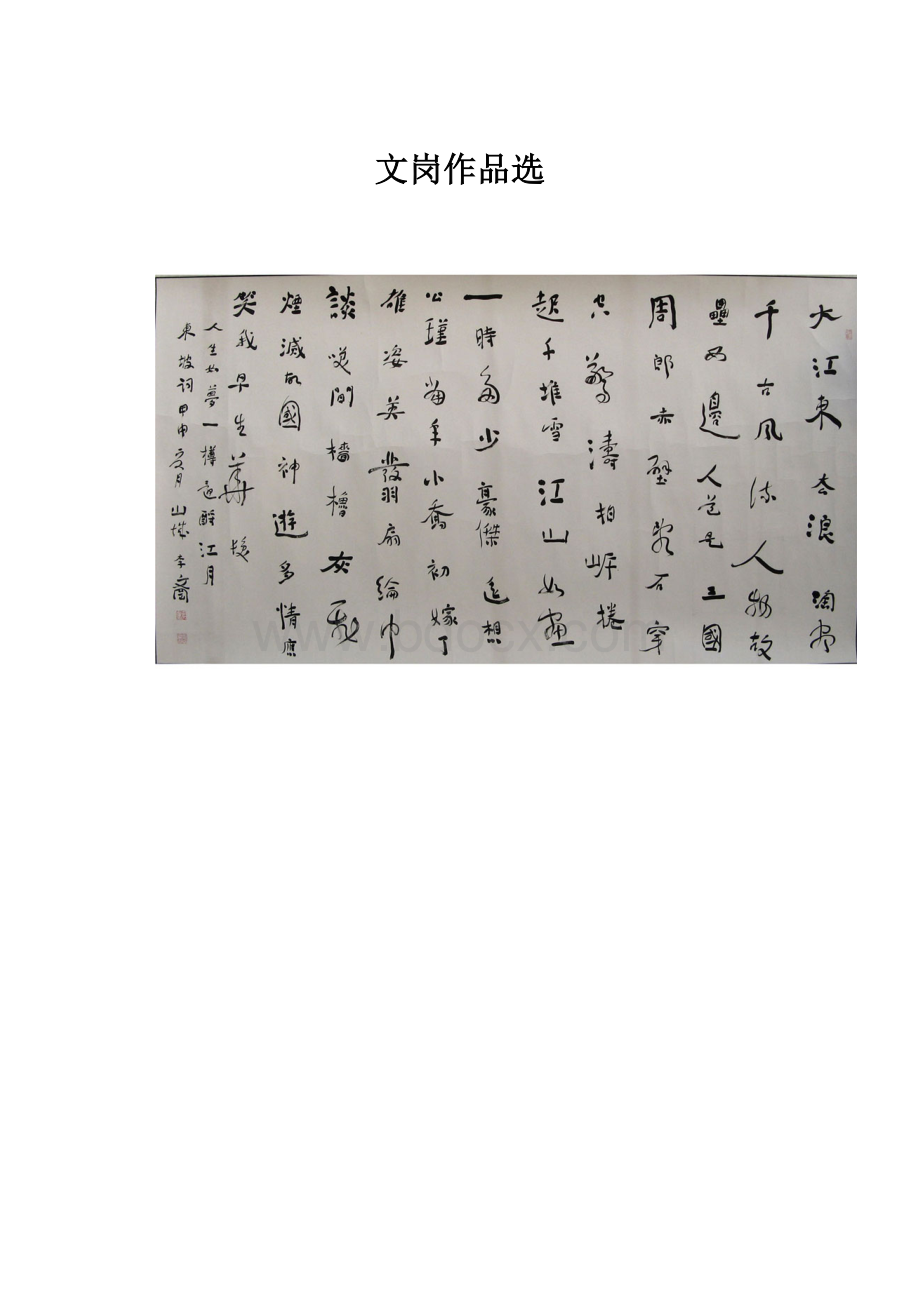 文岗作品选
大江東去浪淘盡
千古風流人物故
壘西邊人道是三國
周郎赤壁亂石穿
空驚濤拍岸捲
起千堆雪江山如畫
一時多少豪傑遙想
公瑾當年小喬初嫁了
雄姿英發羽扇綸巾
談笑間檣櫓灰飛
煙滅故國神遊多情應
笑我早生華髮
人生如夢一樽還酹江月
東坡詞甲申夏月山城
www.bdocx.com